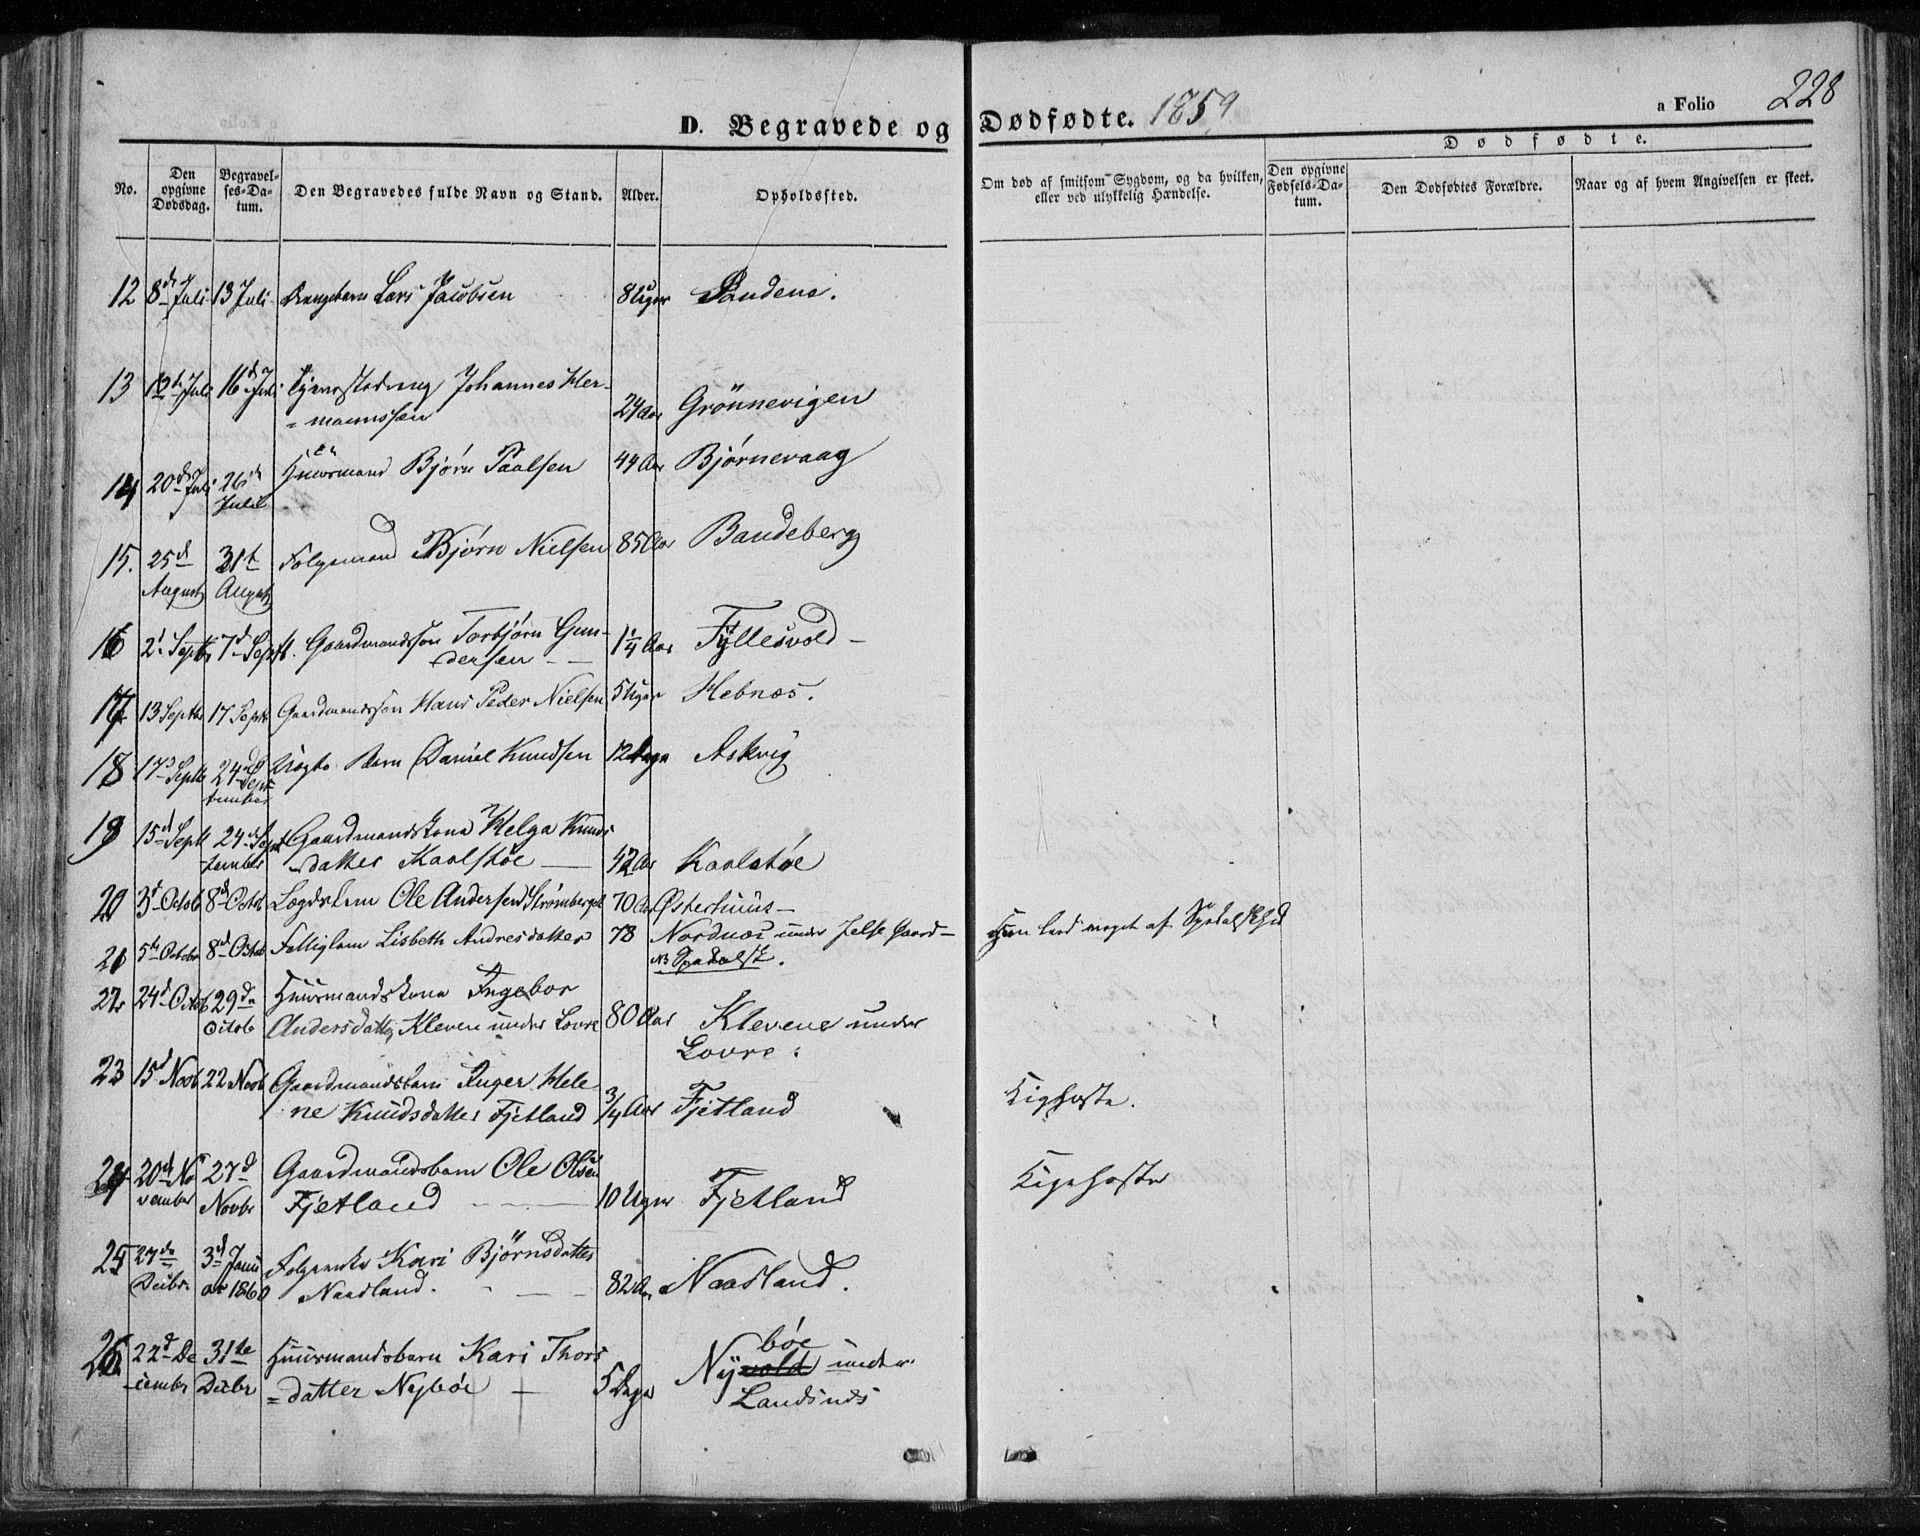 D. Begravede og Dødfødte. 1859
a Folio 228
Dødfødte.
No. Den opgivne Dødsdag. Begravelses-Datum. Den Begravedes fulde Navn og Stand. Alder. Opholdssted. Om død af smitsom Sygdom, og da hvilken, eller ved ulykkelig Hændelse. Den opgivne Fødsels-Datum. Den Dødfødtes Forældre. Naar og af hvem Angivelsen er skeet.
12 8d Juli 13 Juli Lars Jacobsen 8 Uger Sandene.
13 12d Juli 16d Juli Johannes Her-
=mannssen 24 Aar Grönnevigen
14 20d Juli 26d Juli Huusmand Bjørn Paalsen 44 Aar Bjørnevaag
15. 25d August 31t August Folgemand Bjørn Nielsen 85 Aar Bandeberg
16 2d Septb 7d Septb. Gaardmandssøn Torbjørn Gun-
dersen 1 1/4 Aar Fyllesvold
17 13 Septb 17 Septb Gaardmandssøn Hans Peder Nielsen 5 Uger Hebnes.
18 17d Septb 24d September Barn Daniel Knudsen 12 Dage Askvig
19 15d Septb 24d September Gaardmandskone Helga Knuds
datter Kaalstøe 42 Aar Kaalstøe
20 3d Octob 8d Octob Lægdslem Ole Andersen Strømberget 70 Aar Østerhuus
21 5th Octobr 8d Octob Fattiglem Lisbeth Andresdatter 78 Nordnæs under Jelse Gaard
NB Spedalsk. Hun leed meget af Spedalskhed
22 24d Octob 29de Octob Huusmandskone Ingebor
Andersdatter Kleven under Lovre 80 Aar Klevene under
Lovre.
23 15d Novb 22 Novb Gaardmandsbarn Inger Hele
ne Knudsdatter Fjetland 3/4 Aar Fjetland Kighoste.
24 20d November 27d Novbr Gaardmandsbarn Ole Olsen
Fjetland 10 Uger Fjetland Kighoste
25 27de Decbr. 3d Januar 1860 Kari Bjørnsdatter
Naadland. 82 Aar Naadland.
26 22d December 31te Decbr Huusmandsbarn Kari Thors
=datter Nybøe 5 Dage Nyvold bøe under
Landsnæs